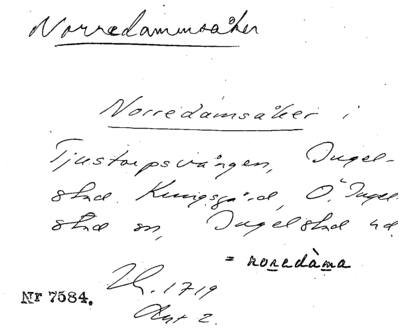 Norredammsåker
Norredamsåker i
Tjustorpsvången, Ingel-
stad Kungsgård, Ö. Ingel-
stad sn, Ingelstad hd.
= noredàma
1719
Akt 2.
Nr 7584.